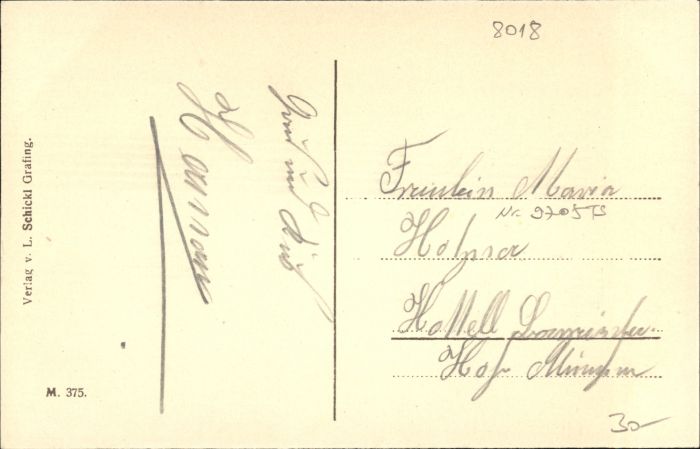 8018
Verlag v. L. Schickl Grafing.
M. 375.
Gruß und Kuß
Fräulein Maria
Nr. 9705TS
Hottell
Hof München
30-